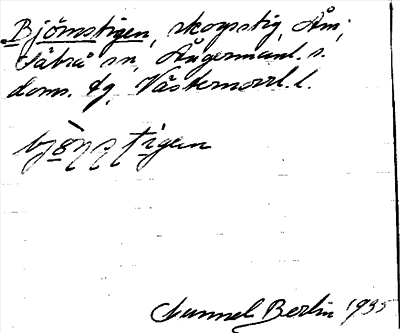 Björnstigen, skogsstig, Åm;
Säbrå sn, Ångermanl. s.
doms. tg, Västernorrl. l.
bjö̀ɳʂtigen
Gunnel Berlin 1935